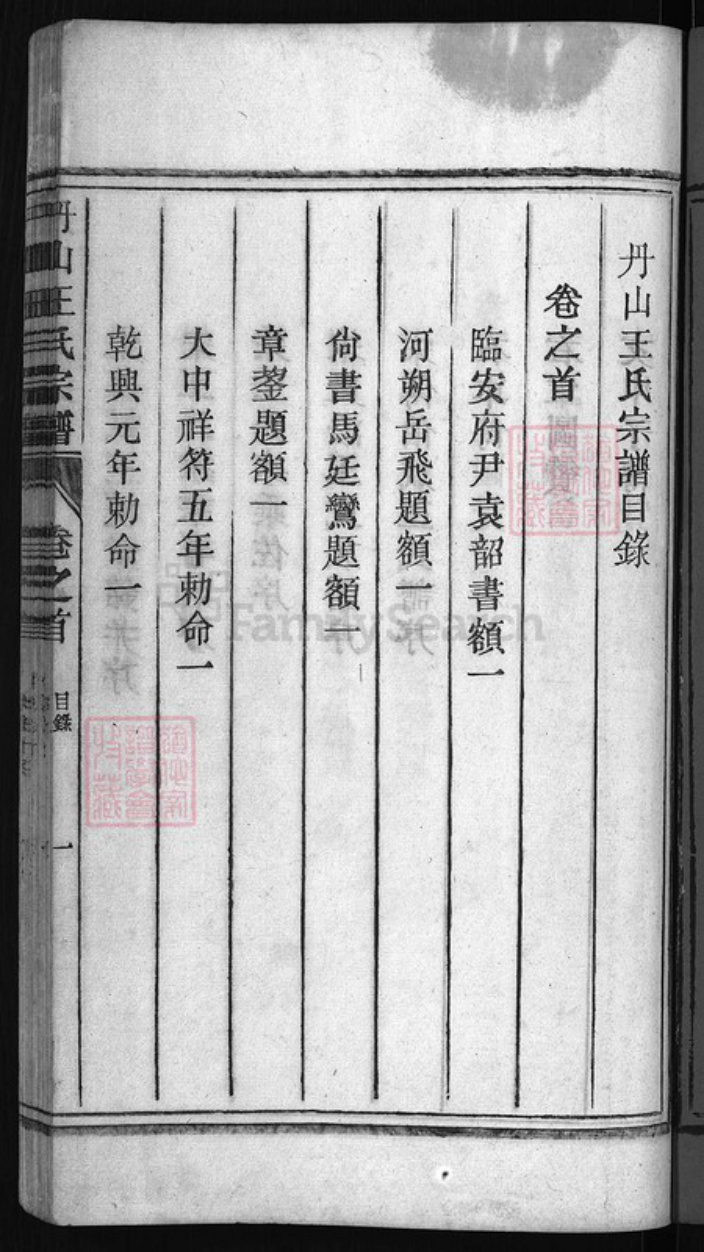 丹山王氏宗譜目錄
卷之首
臨安府尹袁韶書額一
河朔岳飛題額一
尙書馬廷鸞題額一
章鋆題額一
大中祥符五年勅命一
乾興元年勅命一
丹山王氏宗譜 卷之首 目錄 一
FamilySearch